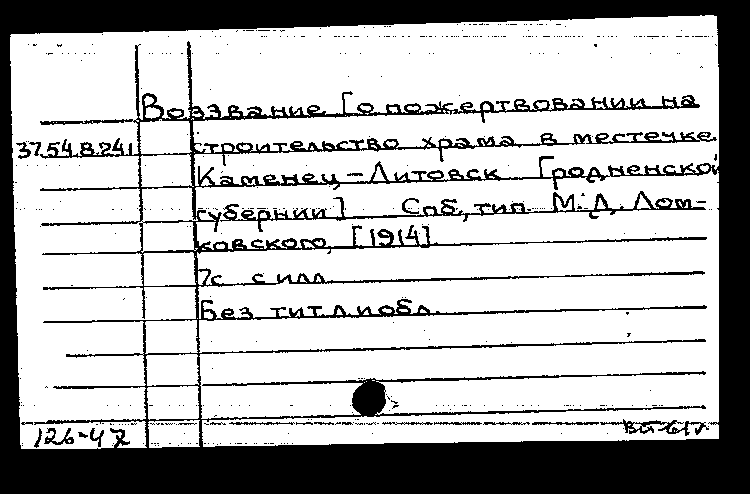 Воззвание [о пожертвовании на
37.54.8.241 строительство храма в местечке
Каменец-Литовск Гродненской
губернии] Спб, тип. М.Д. Лом-
ковского, [1914].
7с с илл
Без тит. л и обл.
126-47